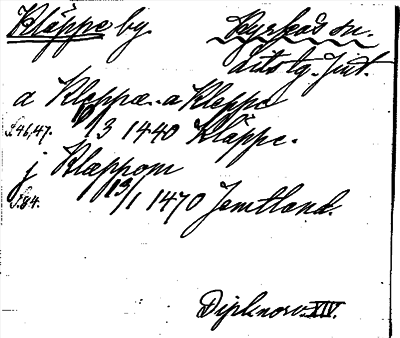 Kläppe by. Kyrkås sn.
Lits tg. Jmt.
a Kleppæ. a Kleppe
S. 46, 47. 10/3 1440 Kläppe.
j Klæppom
S. 84. 13/1 1470 Jemtland.
Dipl. norv. XIV.